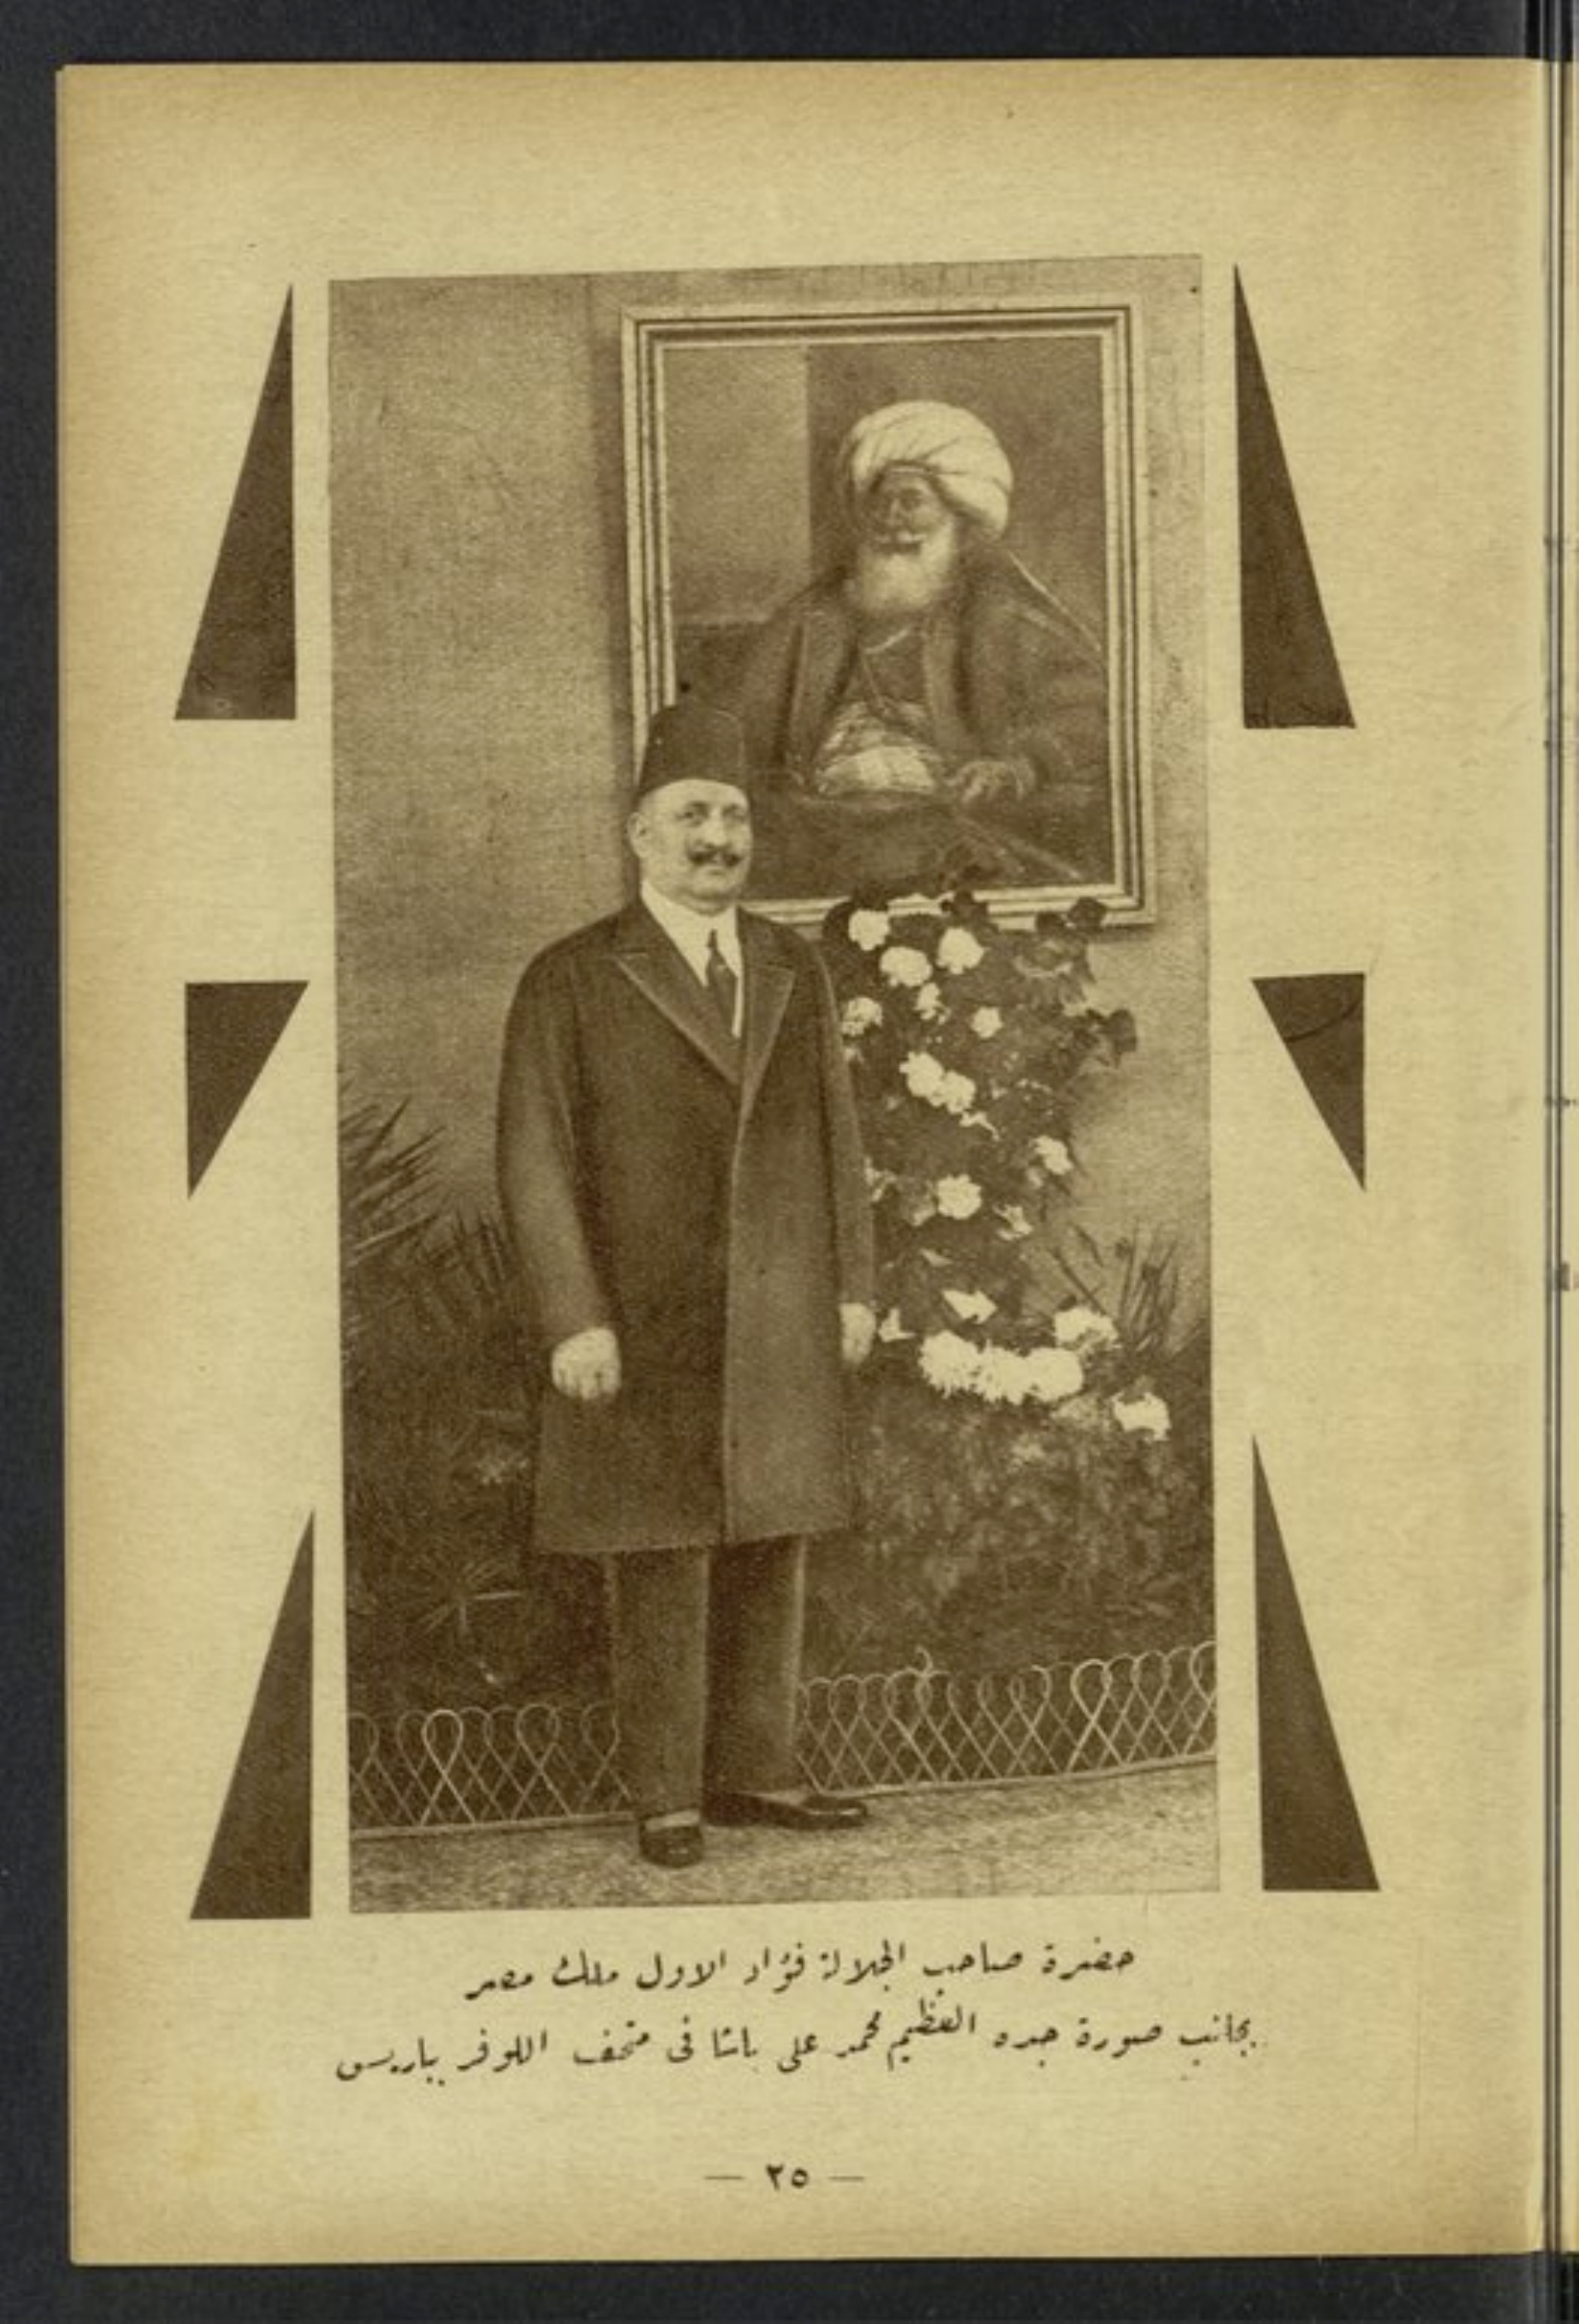 حضرة صاحب الجلالة فؤاد الاول ملك مصر
بجانب صورة جده العظيم محمد على باشا فى متحف اللوفر بباريس
— ٢٥ —